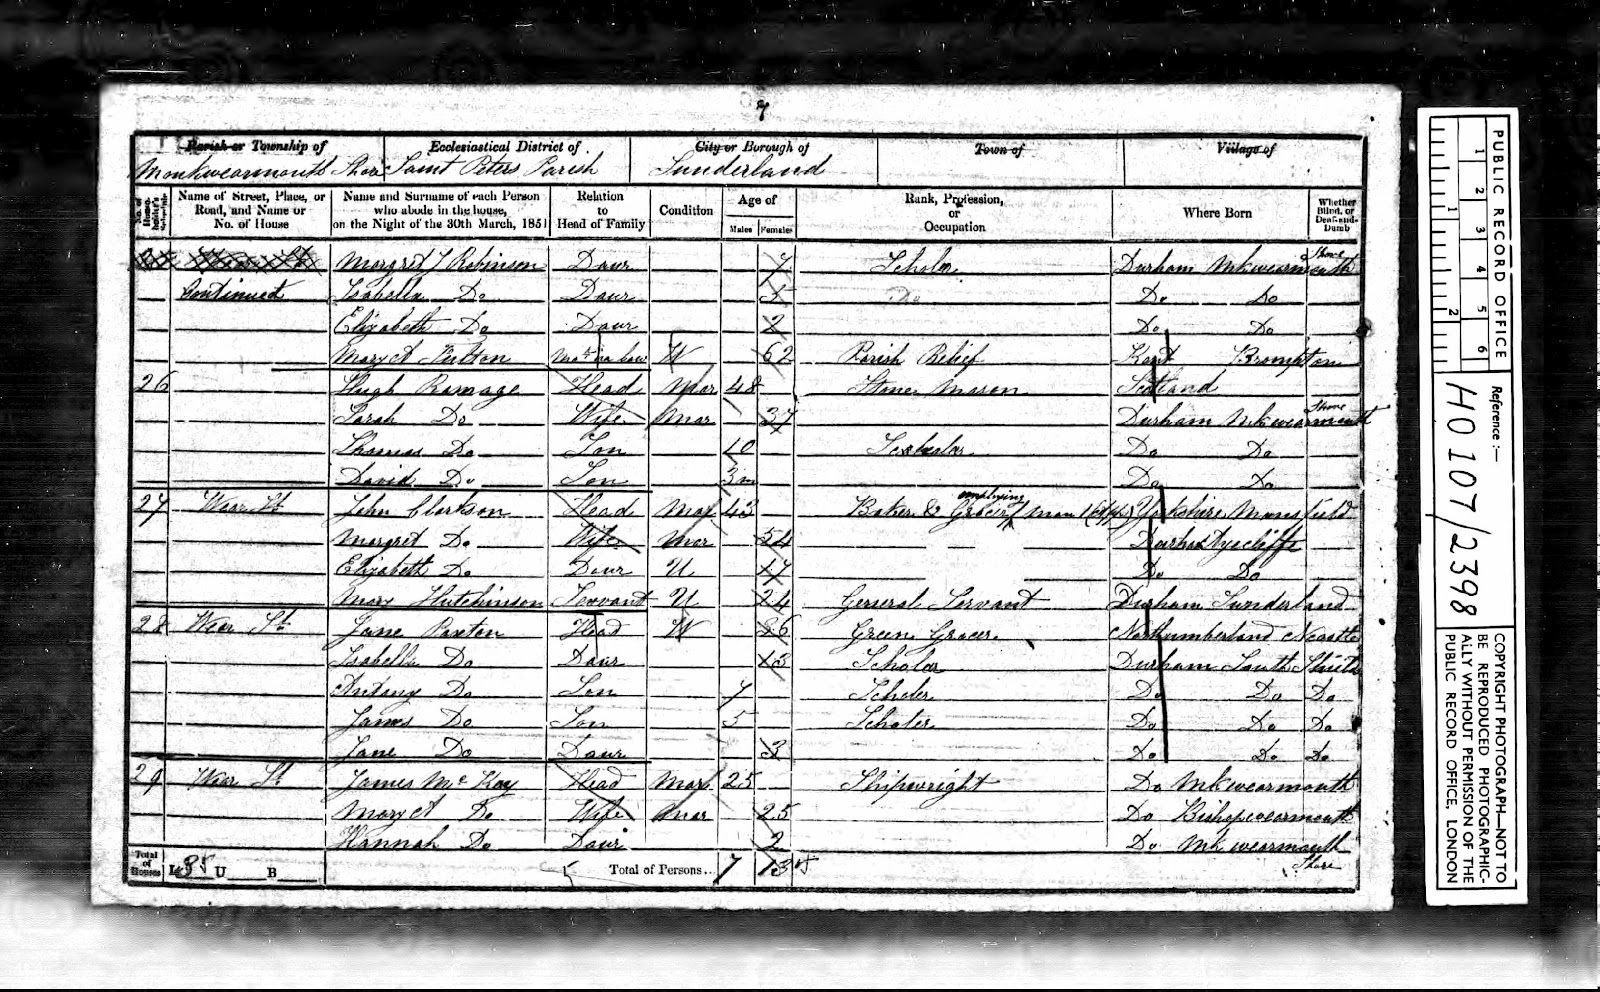 7
Parish or Township of Ecclesiastical District of City or Borough of Town of Village of
Monkwearmouth Shore Saint Peters Parish Sunderland
No. of House-holder's Schedule Name of Street, Place, or Road, and Name or No. of House Name and Surname of each Person who abode in the house, on the Night of the 30th March, 1851 Relation to Head of Family Condition Age of Males Females Rank, Profession, or Occupation Where Born Whether Blind, or Deaf-and-Dumb
Margret J Robinson Daur 7 Scholar Durham Mkwearmouth Shore
Continued Isabella Do Daur 5 Do Do Do
Elizabeth Do Daur 2 Do Do
Mary A Fulton Mothr in law W 62 Parish Relief Kent Brompton
26 Hugh Ramage Head Mar 48 Stone Mason Scotland
Sarah Do Wife Mar 37 Durham Mkwearmouth Shore
Thomas Do Son 10 Scholar Do Do
David Do Son 3m Do Do
27 Wear St John Clarkson Head Mar 43 Baker & Grocer employing 1 man Yorkshire Mansfield
Margret Do Wife Mar 54 Durham Aycliffe
Elizabeth Do Daur U 17 Do Do
Mary Hutchinson Servant U 24 General Servant Durham Sunderland
28 Wear St Jane Paxton Head W 36 Green Grocer Northumberland Ncastle
Isabella Do Daur 13 Scholar Durham South Shields
Antony Do Son 7 Scholer Do Do Do
James Do Son 5 Scholer Do Do Do
Jane Do Daur 3 Do Do Do
29 Wear St James Mc Kay Head Mar 25 Shipwright Do Mkwearmouth
Mary A Do Wife Mar 25 Do Bishopwearmouth
Hannah Do Daur 2 Do Mk wearmouth Shore
Total of Houses I U B Total of Persons.. 7 13
PUBLIC RECORD OFFICE
1 2 3 4 5 6
1 2
Reference :—
HO 107/2398
COPYRIGHT PHOTOGRAPH—NOT TO BE REPRODUCED PHOTOGRAPHIC-ALLY WITHOUT PERMISSION OF THE PUBLIC RECORD OFFICE, LONDON